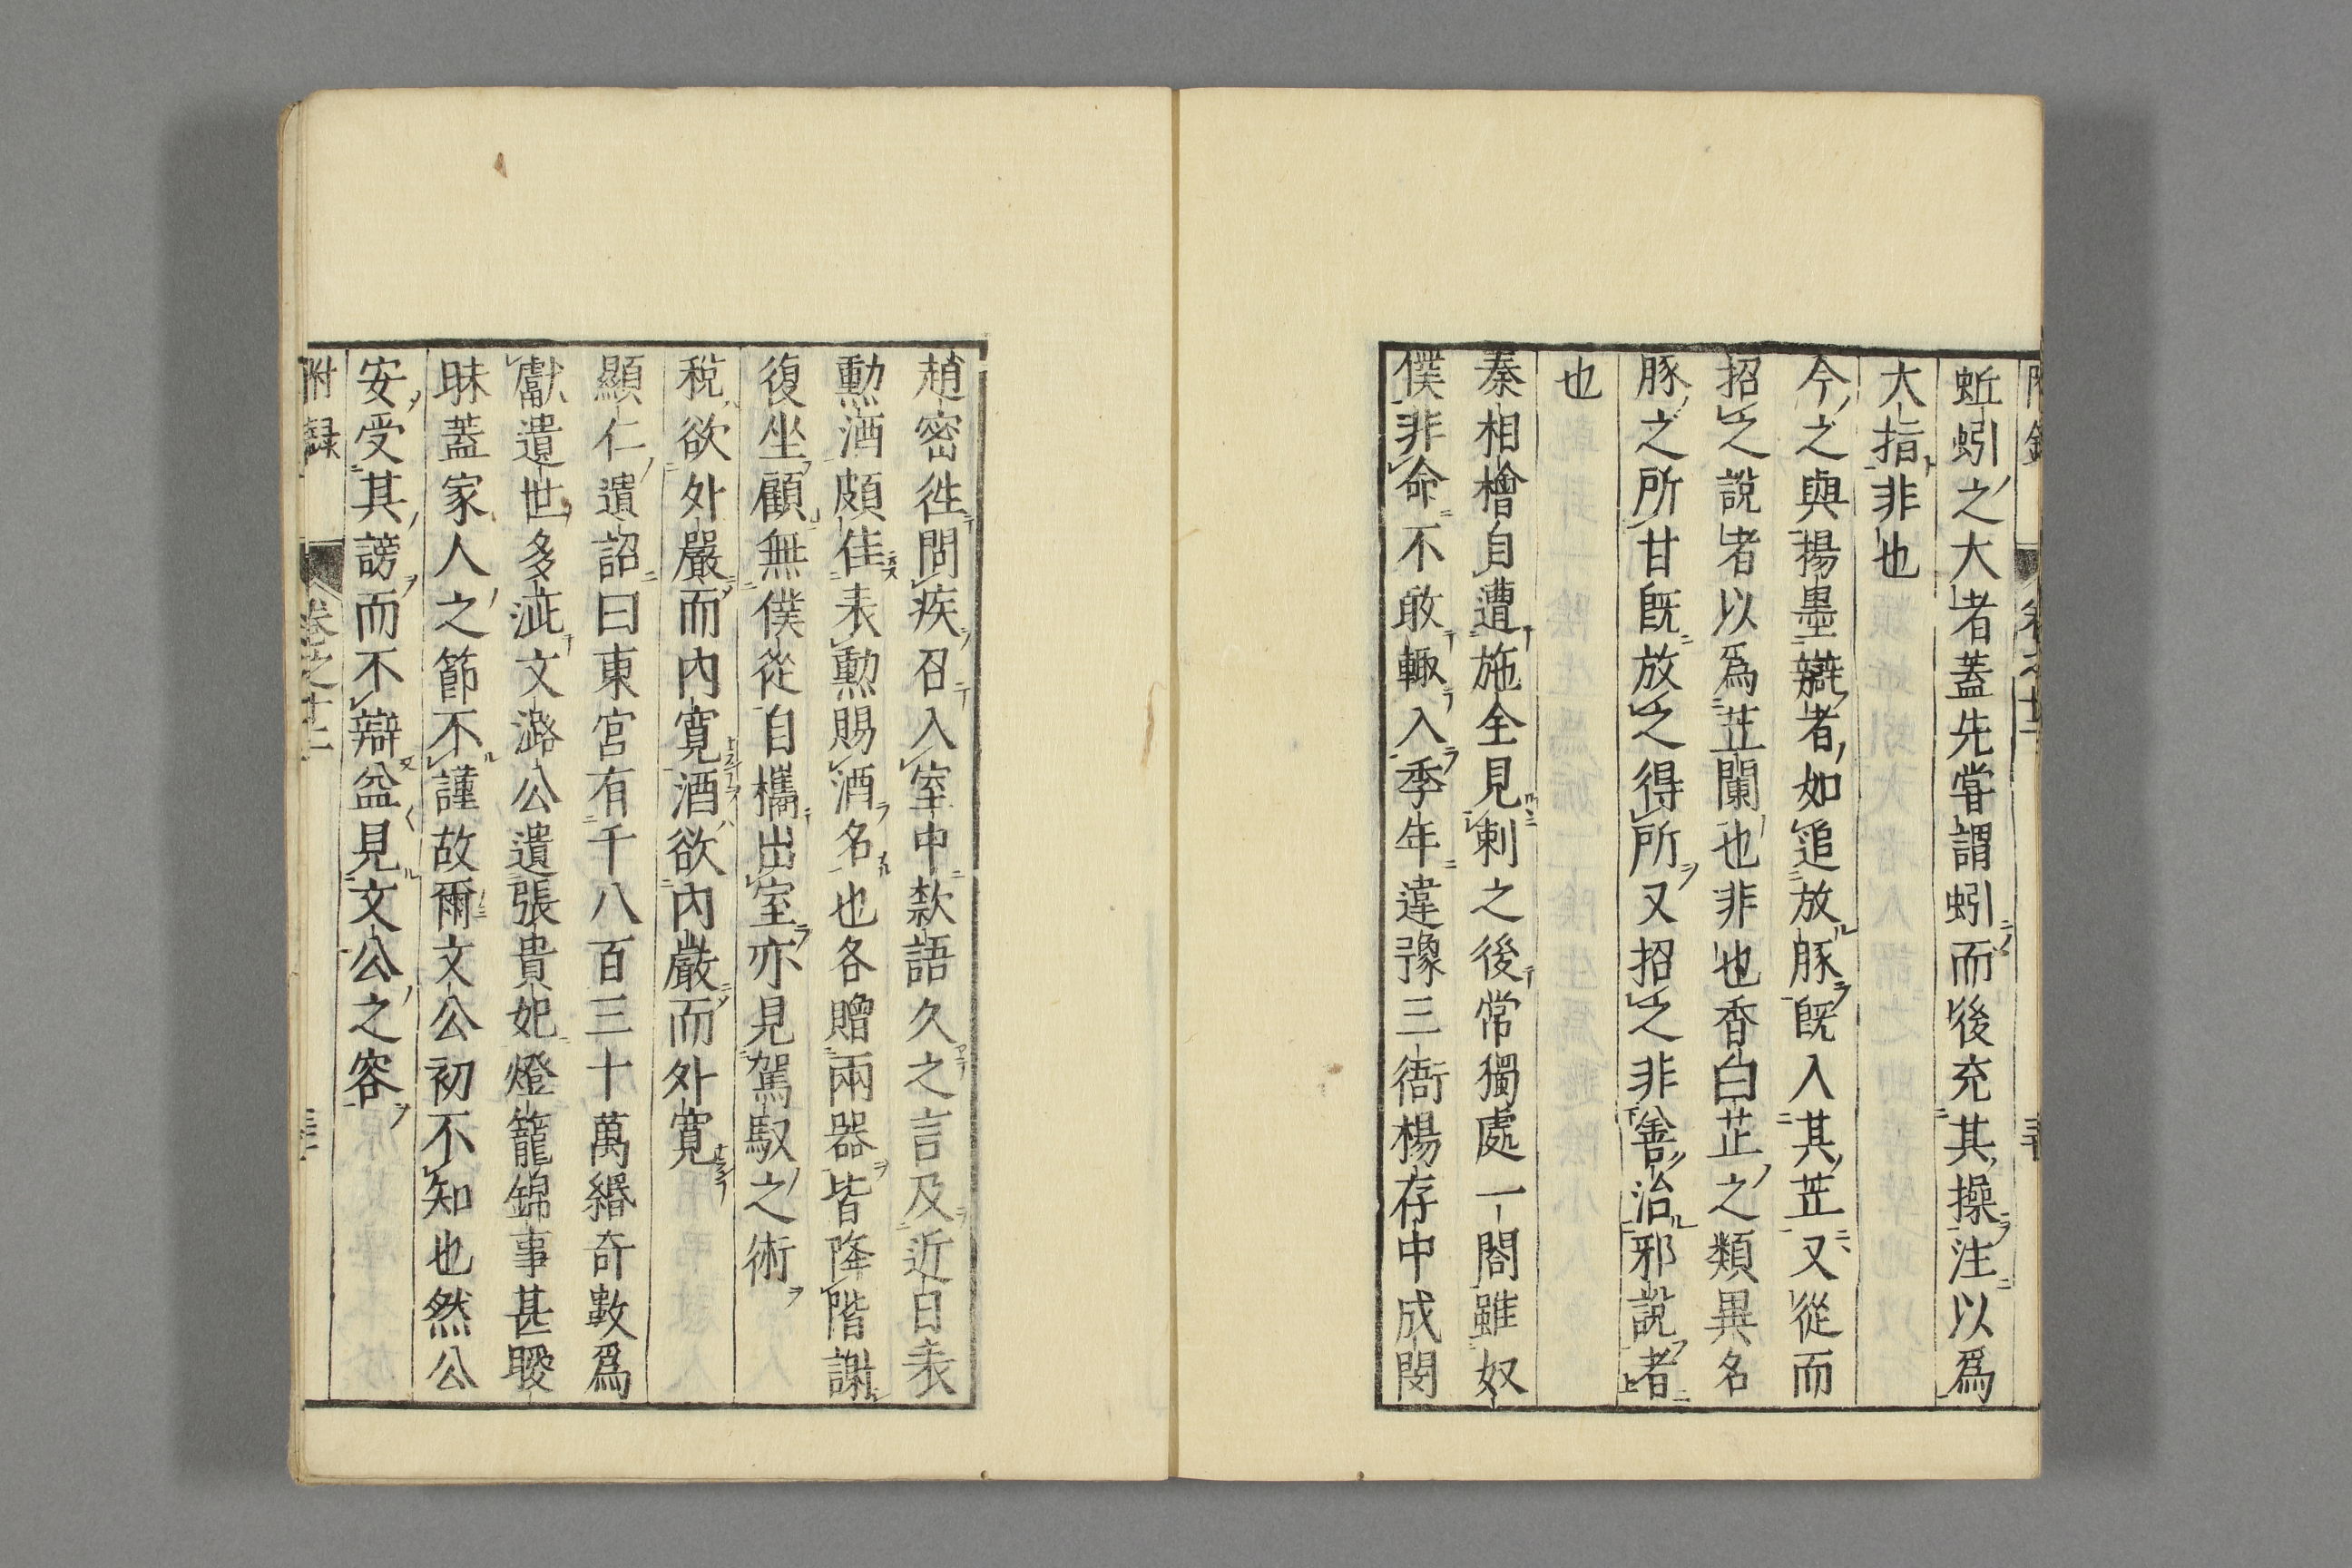 蚯蚓之大者蓋先嘗謂蚓而後充其操注以爲
大指非也
今之與楊墨辯者如追放豚旣入其苙又從而
招之說者以爲苙闌也非也香白芷之類異名
豚之所甘旣放之得所又招之非善治邪說者
也
秦相檜自遭施全見刺之後常獨處一閣雖奴
僕非命不敢輒入季年違豫三衙楊存中成閔
趙密徃問疾召入室中欵語久之言及近日表
勲酒頗佳表勲賜酒名也各贈兩器皆降階謝
復坐顧無僕從自攜出室亦見駕馭之術
稅欲外嚴而內寛酒欲內嚴而外寛
顯仁遺詔曰東宮有千八百三十萬緡奇數爲
獻遺世多疵文潞公遺張貴妃燈籠錦事甚曖
昧蓋家人之節不謹故爾文公初不知也然公
安受其謗而不辯益見文公之容
附録　卷之十二